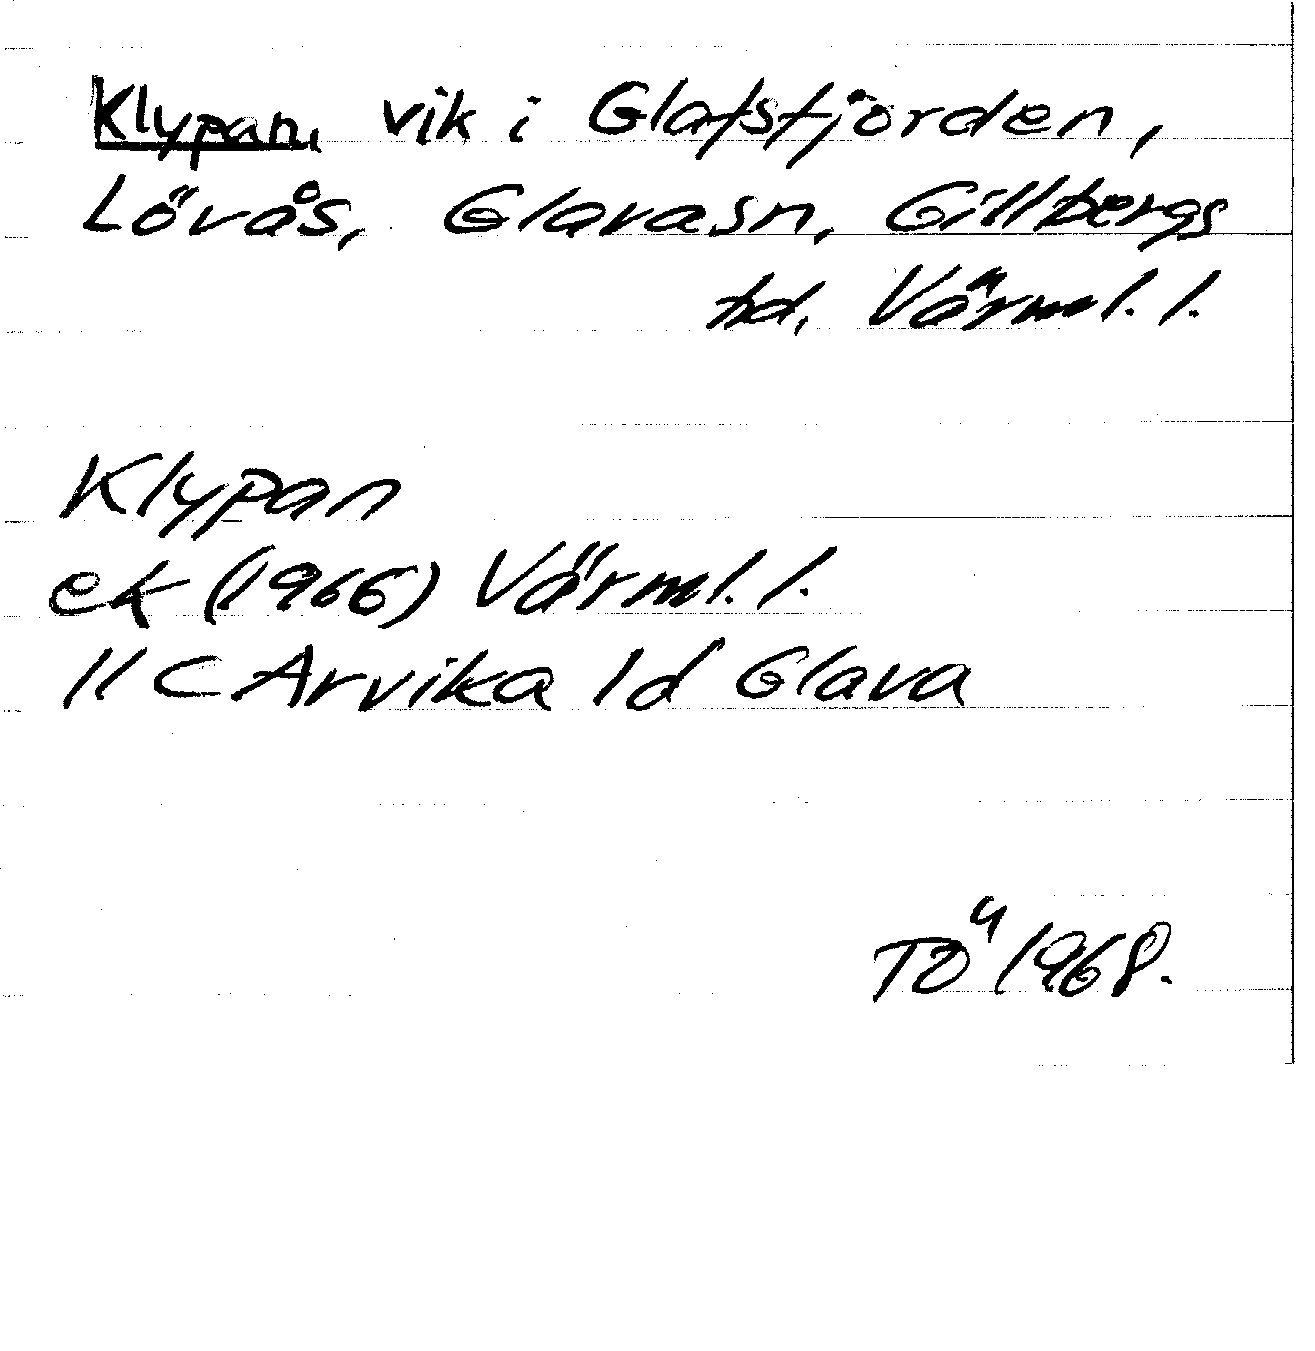 Klypan, vik i Glafsfjorden,
Lövås, Glava sn, Gillbergs
hd, Värml. l.
Klypan
ek (1966) Värml. l.
11 C Arvika 1d Glava
TÖ 1968.